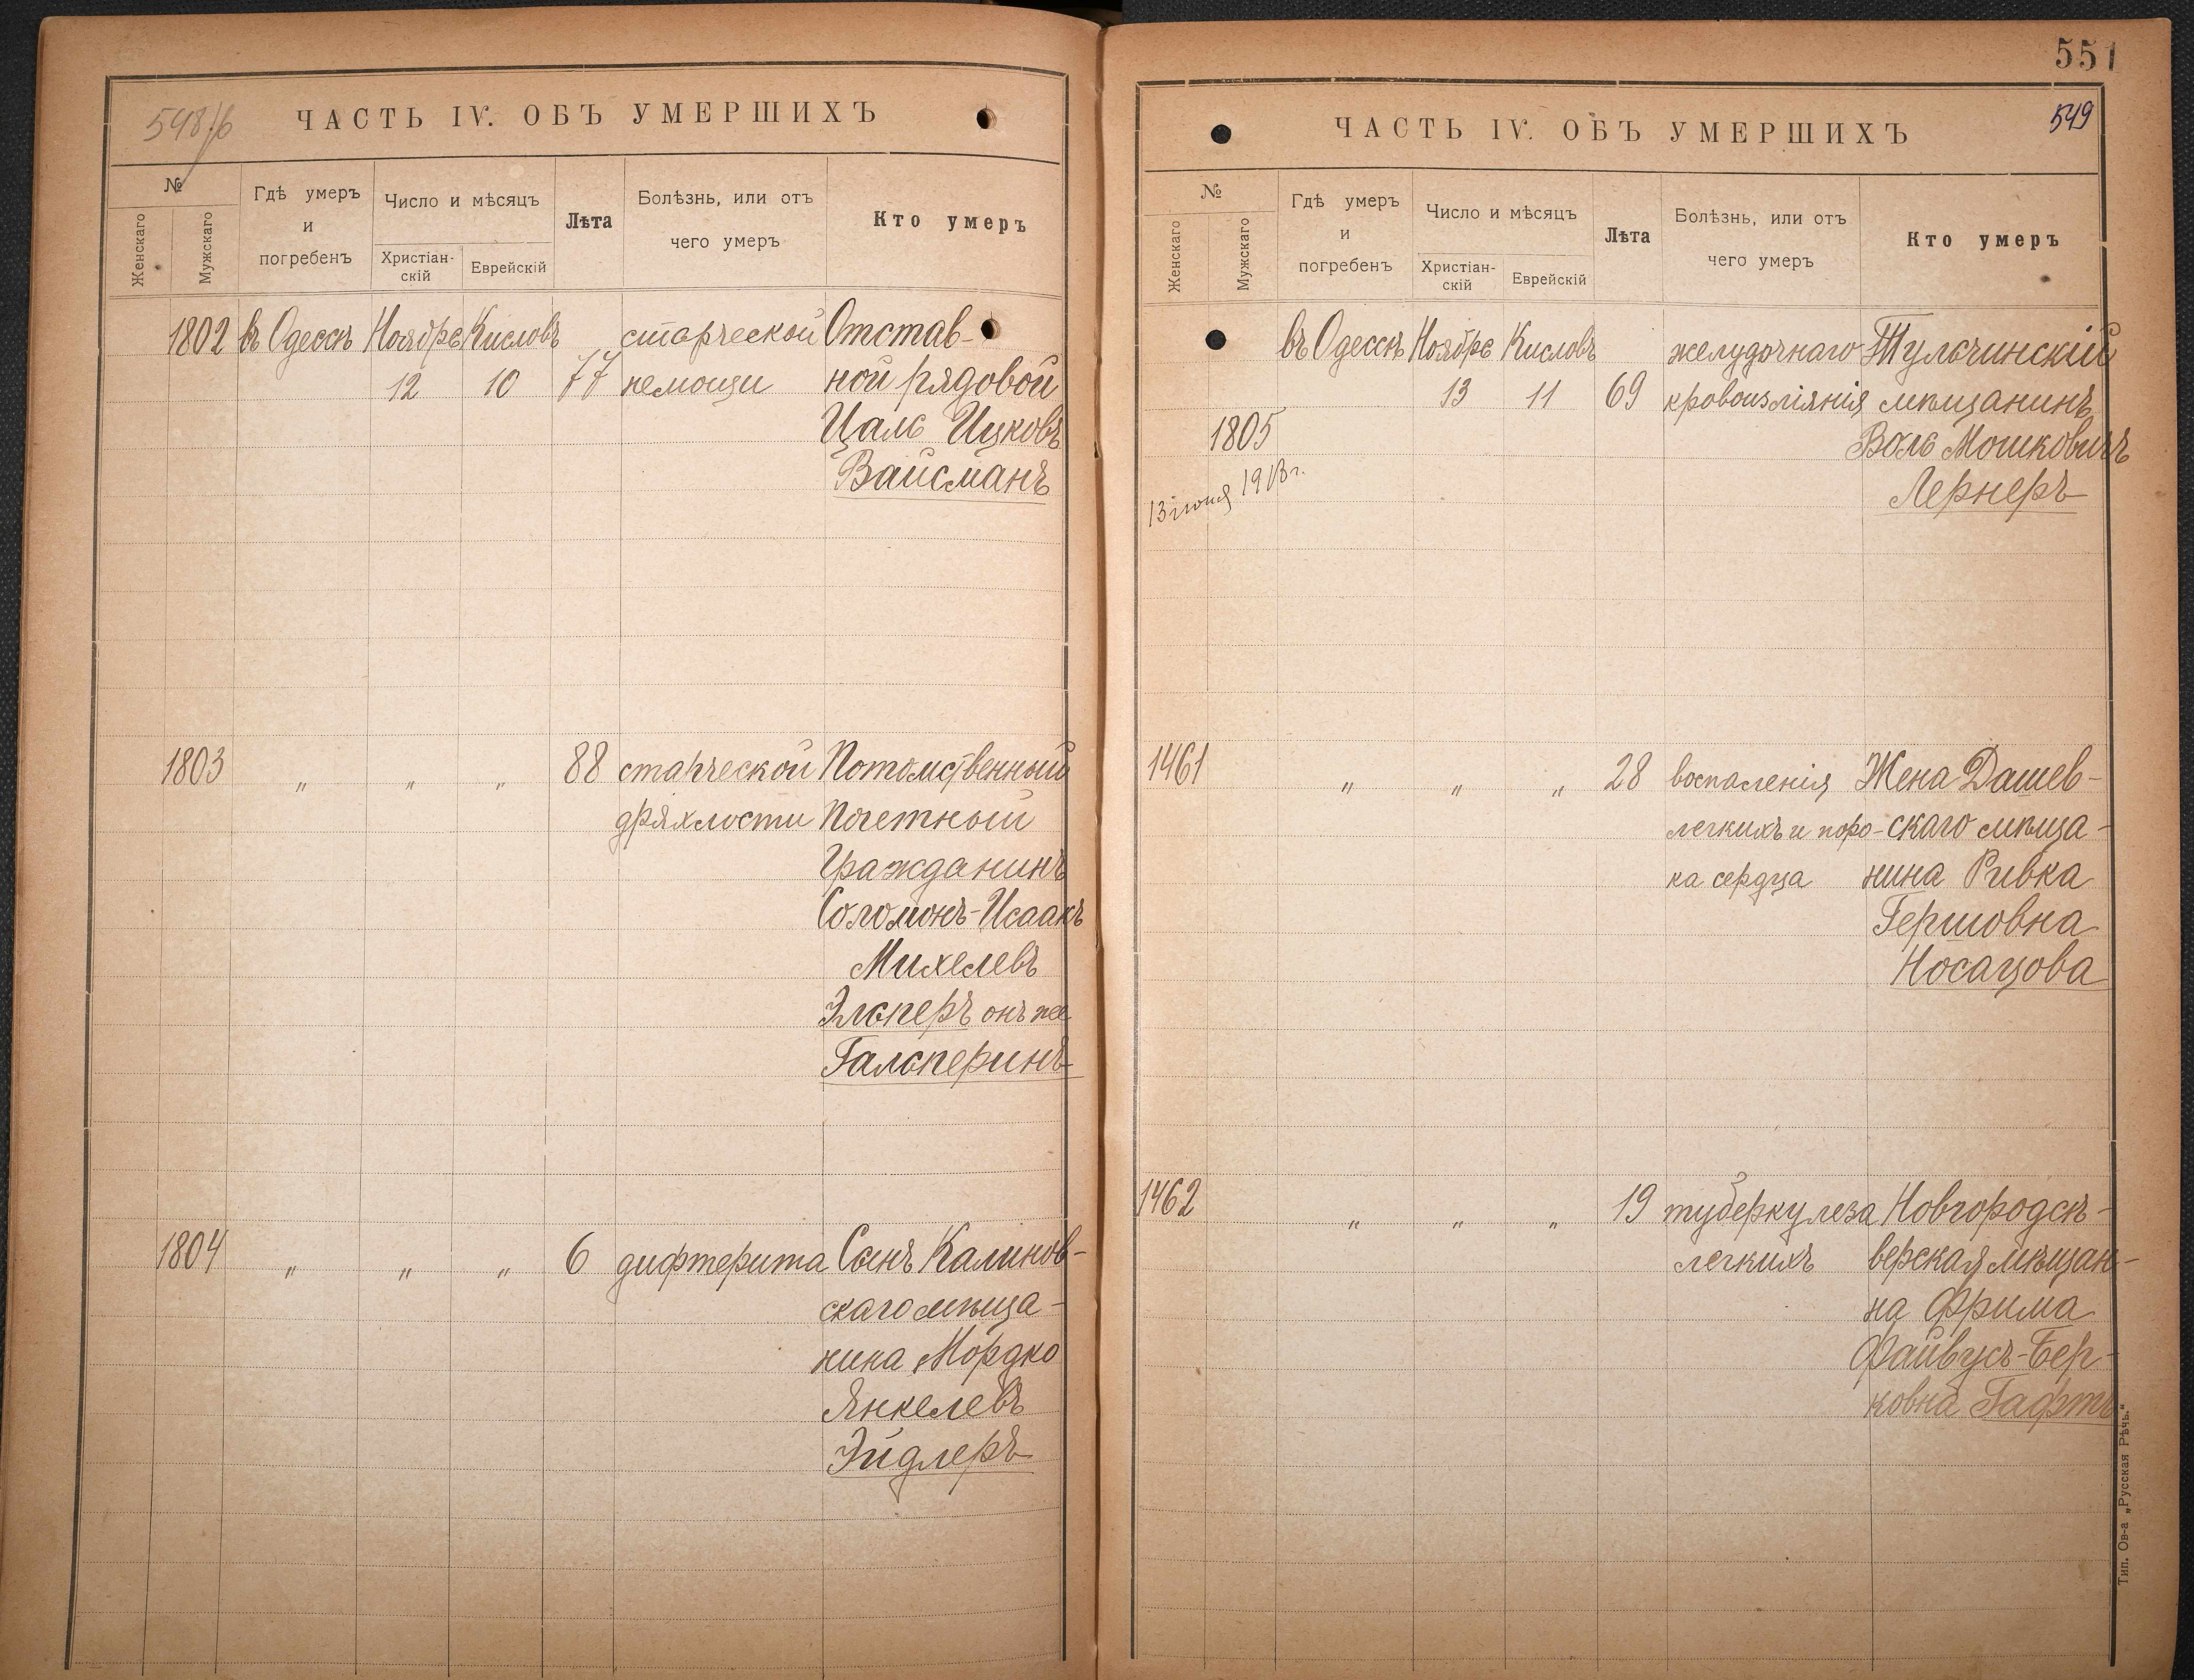 548/б
ЧАСТЬ IV. ОБЪ УМЕРШИХЪ
№
Женскаго
Мужскаго
Гдѣ умеръ
и
погребенъ
Число и мѣсяцъ
Христіан-
скій
Еврейскій
Лѣта
Болѣзнь, или отъ
чего умеръ
Кто умеръ
1802 въ Одессѣ Ноября Кисловъ старческой Отстав-
12 10 77 немощи ной рядовой
Цаль Ицковъ
Вайсманъ
1803 " " " 88 старческой Потомственный
дряхлости Почетный
Гражданинъ
Соломонъ-Исаакъ
Михелевъ
Эльперъ онъ же
Гальперинъ
1804 " " " 6 дифтерита Сынъ Калинов-
скаго мѣща-
нина Мордко
Янкелевъ
Эйдлеръ
551
549
ЧАСТЬ IV. ОБЪ УМЕРШИХЪ
№
Женскаго
Мужскаго
Гдѣ умеръ
и
погребенъ
Число и мѣсяцъ
Христіан-
скій
Еврейскій
Лѣта
Болѣзнь, или отъ
чего умеръ
Кто умеръ
въ Одессѣ Ноября Кисловъ желудочнаго Тульчинскій
13 11 69 кровоизліянія мѣщанинъ
1805 Воль Мошковичъ
13 іюня 1913 г. Лернеръ
1461 " " " 28 воспаленія Жена Дашев-
легкихъ и поро- скаго мѣща-
ка сердца нина Ривка
Гершовна
Носацова
1462 " " " 19 туберкулеза Новгородсѣ-
легкихъ верская мѣщан-
на Фрима
Файвусъ-Бер-
ковна Гафтъ
Тип. Ов-а „Русская Рѣчь."